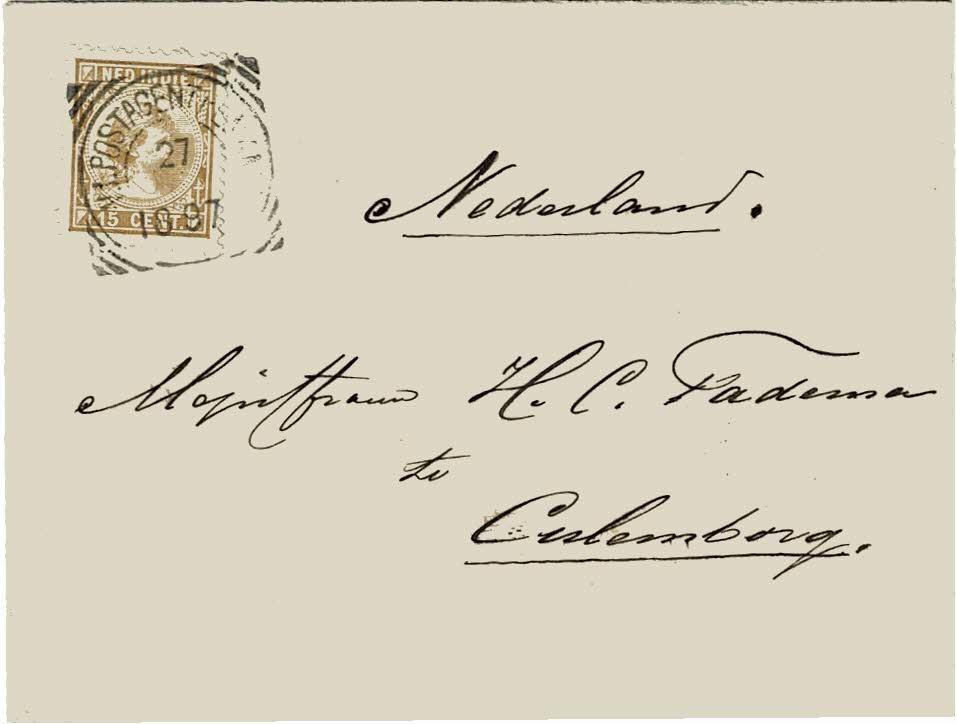 NED. INDIE
POSTAGENT
27
10 97
15 CENT.
Nederland.
Mejuffrouw H. C. Fadema
te
Culemborg.